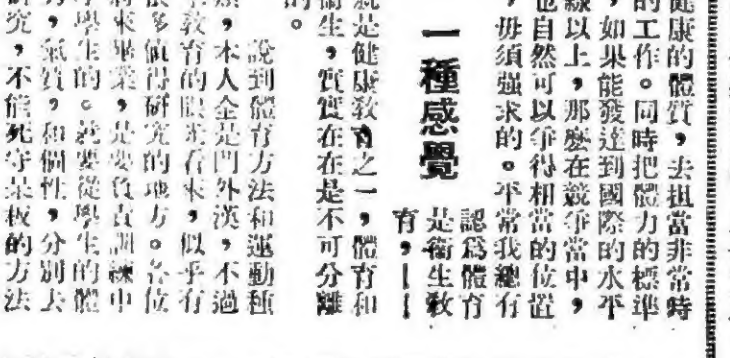 健康的體質，去担當非常時
的工作。同時把體力的標準
，如果能發達到國際的水平
線以上，那麼在競爭當中，
也自然可以爭得相當的位置
，毋須強求的。平常我總有
一種感覺
認爲體育
是衞生敎
育，——
就是健康敎育之一，體育和
衞生，實實在在是不可分離
的。
說到體育方法和運動種
，本人全是門外漢，不過
敎育的眼光看來，似乎有
多值得研究的地方。各位
來畢業，是要負責訓練中
學生的。就要從學生的體
，氣質，和個性，分別去
究，不能死守呆板的方法